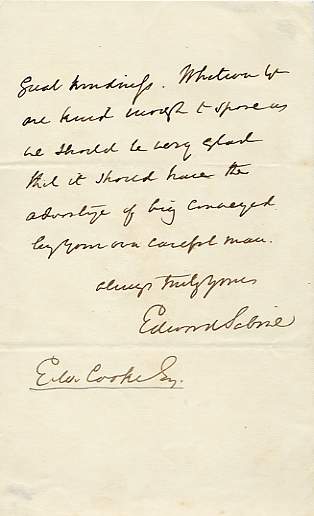 great kindness. Whatever you
are kind enough to spare us
we should be very glad
that it should have the
advantage of being conveyed
by your own careful man.
always truly yours
Edward Sabine
E.W. Cooke Esq.